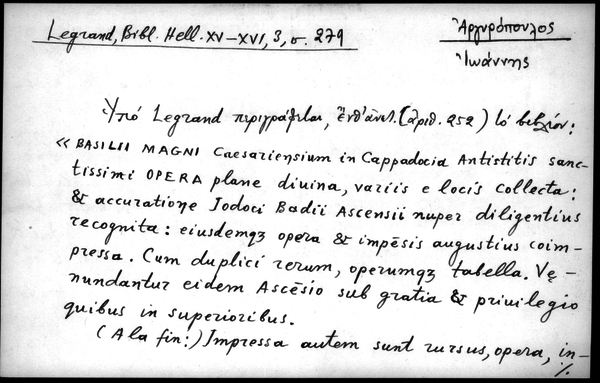 Legrand, Bibl. Hell. XV–XVI, 3, σ. 279
Ἀργυρόπουλος
Ἰωάννης
Ὑπό Legrand περιγράφεται, ἔνθ' ἀνωτ. (ἀριθ. 252) τό βιβλίον:
« BASILII MAGNI Caesariensium in Cappadocia Antistitis sanc-
tissimi OPERA plane diuina, variis e locis collecta:
& accuratiōe Jodoci Badii Ascensii nuper diligentius
recognita: eiusdemqȝ opera & impēsis augustius coim-
pressa. Cum duplici rerum, operumqȝ tabella. Vę-
nundantur eidem Ascēsio sub gratia & priuilegio
quibus in superioribus.
(A la fin:) Impressa autem sunt rursus, opera, in-
·/.